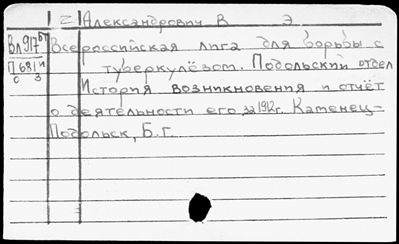 Александрович В Э
Вл917 Всероссийская лига для борьбы с
П681 туберкулёзом. Подольский отдел
История возникновения и отчёт
о деятельности его за 1912г. Каменец-
Подольск, Б.Г.